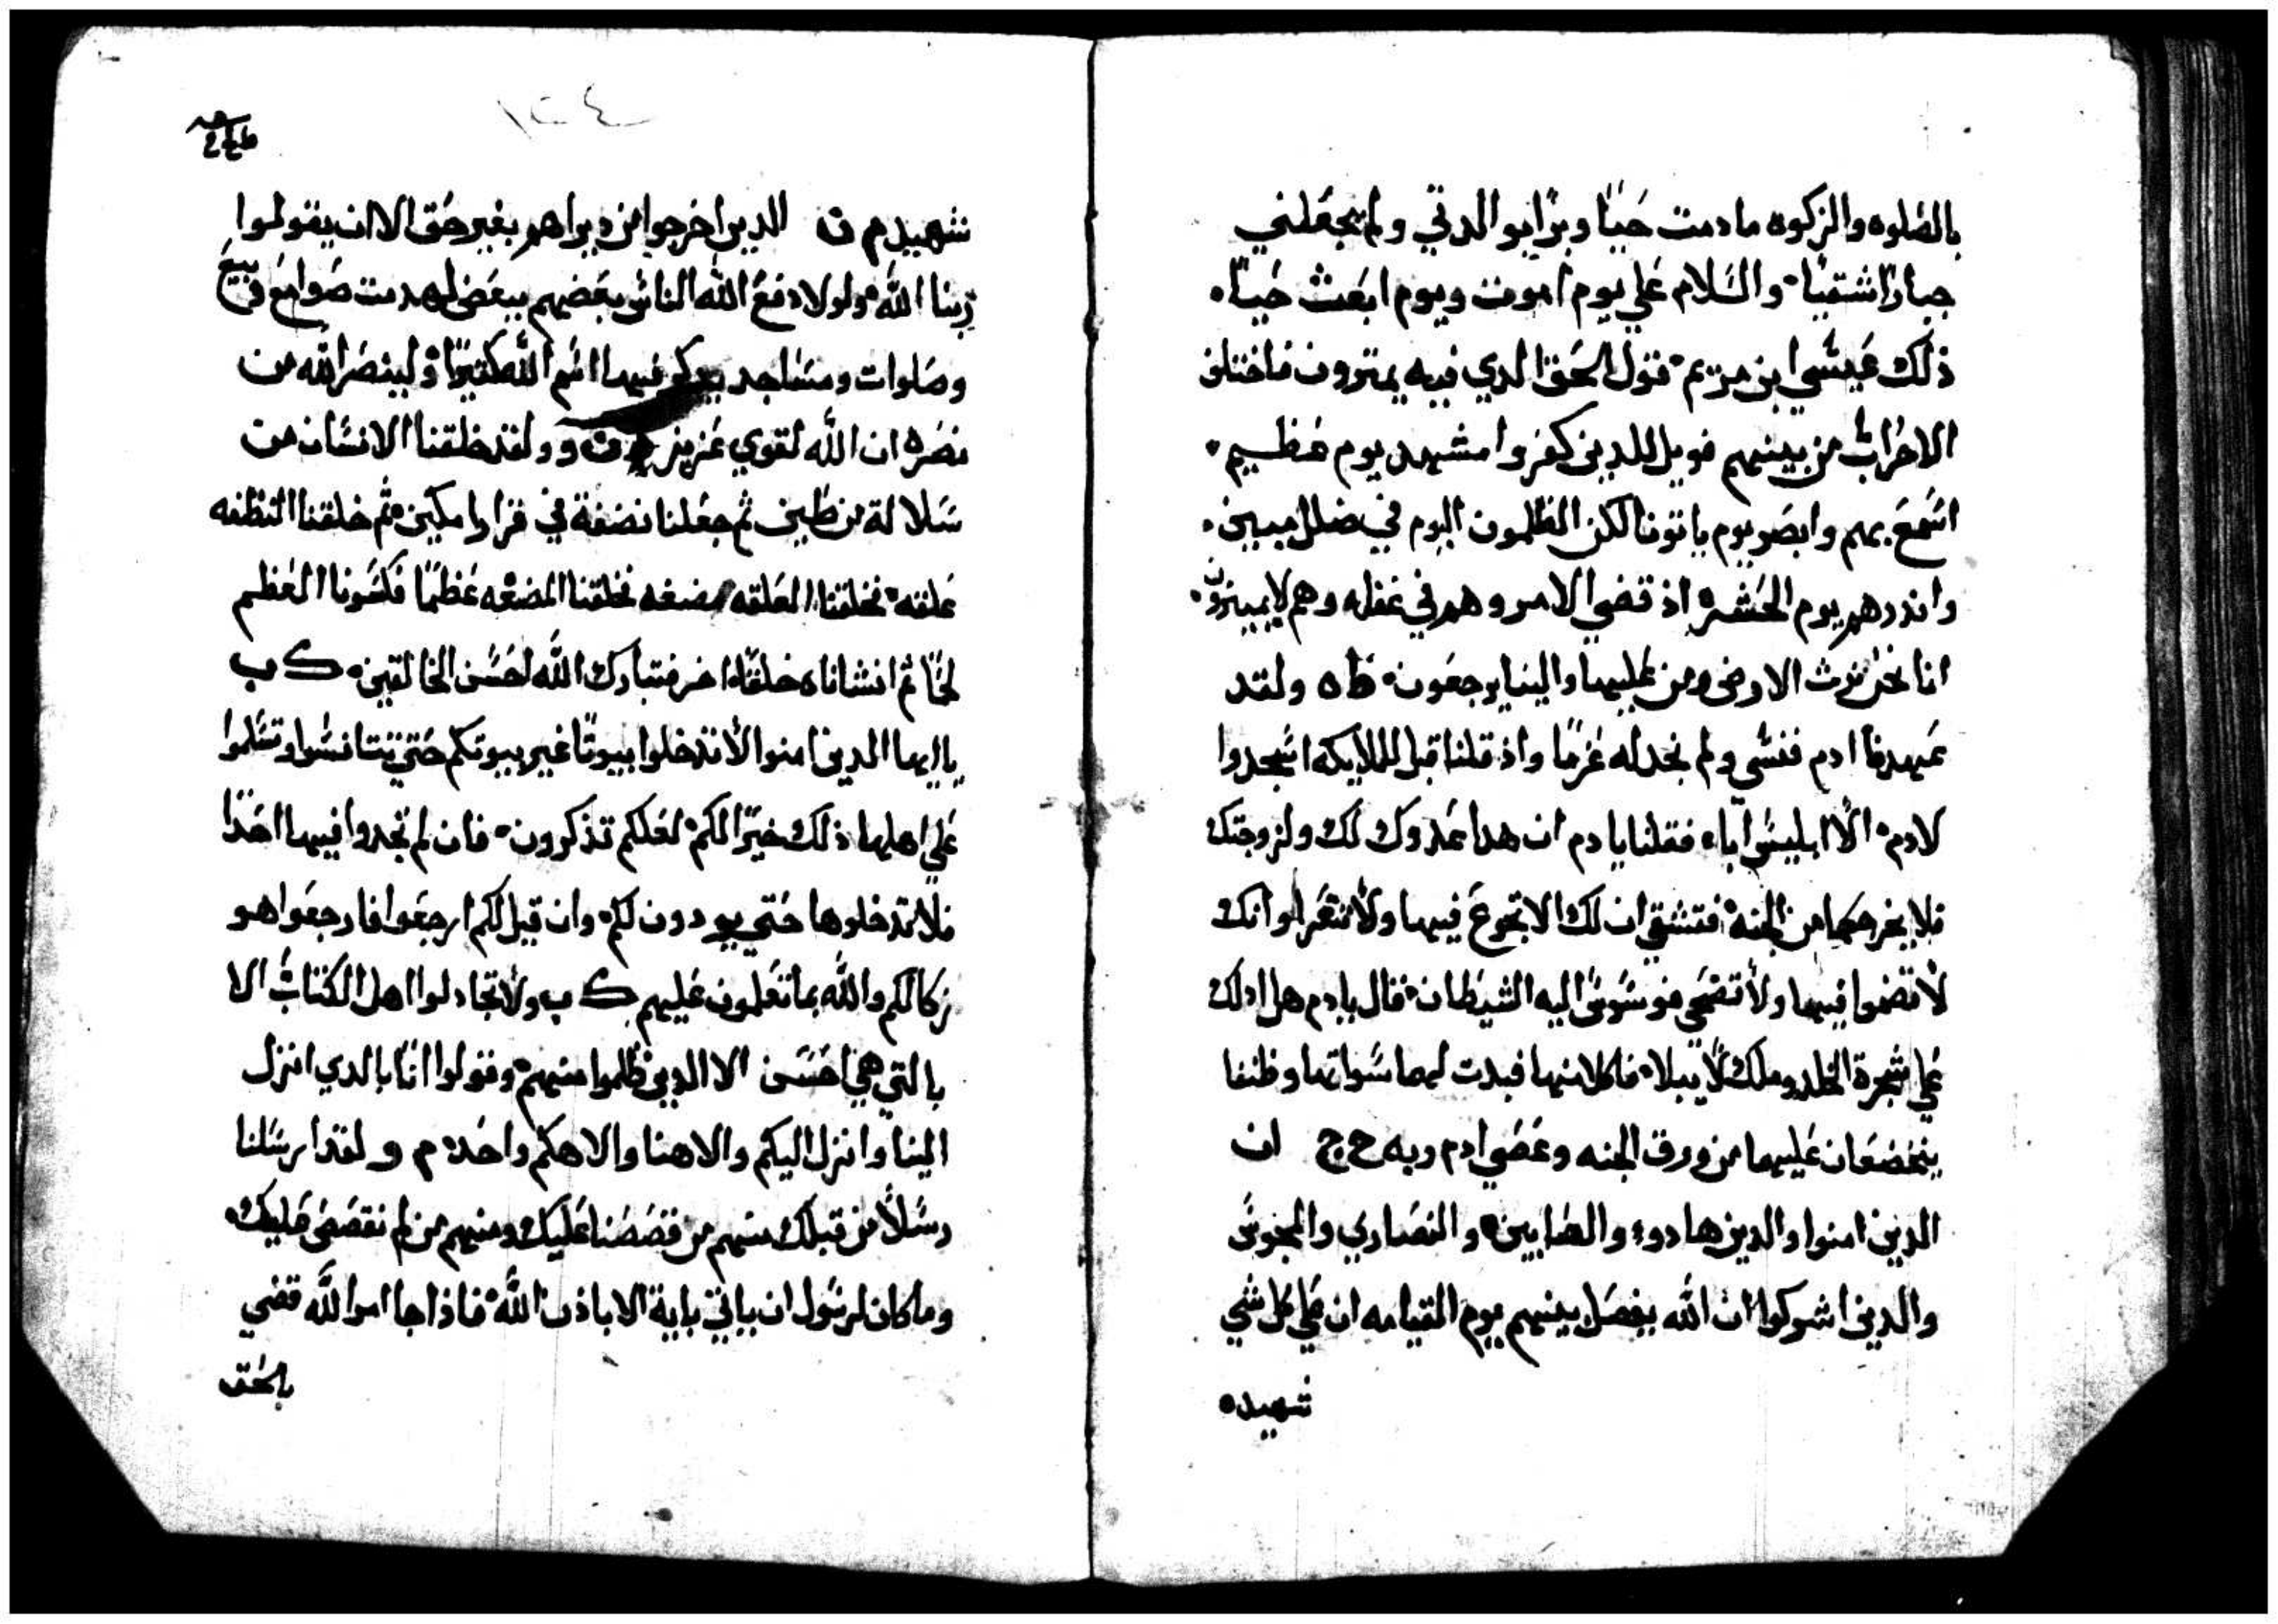 بالصلوه والزكوه ما دمت حيا وبرا بوالدتي ولم يجعلني
جبارا شقيا والسلام علي يوم اموت ويوم ابعث حيا
ذلك عيسي ابن مريم قول الحق الدي فيه يمترون فاختلف
الاحزاب من بينهم فويل للدين كفروا مشهد يوم عظيم
اسمع بهم وابصر يوم ياتونا لكن الظلمون اليوم في ضلل مبين
وانذرهم يوم الحشره اذ قضي الامر وهم في غفله وهم لا يميزون
انا نحن نرث الارض ومن عليها والينا يرجعون طه ولقد
عهدنا ادم فنسي ولم نجد له عزما واذ قلنا قبل للملايكه اسجدوا
لادم الا ابليس اباء فقلنا يادم ان هدا عدوك لك ولزوجتك
فلا يخرجكما من الجنه فتشقي ان لك الا تجوع فيها ولا تتعرا وانك
لا تضموا فيها ولا تضحي فوسوس اليه الشيطان قال يادم هل ادلك
علي شجرة الخلد وملك لا يبلاء فاكلا منها فبدت لهما سواتهما وظنفا
ينخضعان عليهما من ورق الجنه وعصي ادم ربه ح ج ان
الدين امنوا والدين هادوء والصابين والنصاري والمجوس
والدين اشركوا ان الله يفصل بينهم يوم القيامه ان علي كل شي
شهيده
١٢٤
شهيد م ن الدين اخرجوا من ديراهم بغير حق الا ان يقولوا
ربنا الله ولولا دفع الله الناس بعضهم ببعض لهدمت صوامع وبيع
وصلوات ومساجد يدكر فيها اسم الله كثيرا ولينصر الله من
نصره ان الله لقوي عزيز ولقد خلقنا الانسان من
سلالة من طين ثم جعلنا نضفة في قرارا مكين ثم خلقنا النظفه
علقه فخلقنا العلقه مضغه فخلقنا المضغه عظما فكسونا العظم
لحما ثم انشاناه خلقا اخر فتبارك الله احسن الخالقين ك ب
ياايها الدين امنوا لا تدخلوا بيوتا غير بيوتكم حتي تتانسوا وتسلموا
علي اهلها ذلك خيرا لكم لعلكم تذكرون فان لم تجدوا فيها احدا
فلا تدخلوها حتي يودون لكم وان قيل لكم ارجعوا فارجعوا هو
زكا لكم والله بما تعملون عليهم ك ب ولا تجادلوا اهل الكتاب الا
بالتي هي احسن الا الدين ظلموا منهم وقولوا انا بالدي انزل
الينا وانزل اليكم والاهنا والاهكم واحد م ولقد ارسلنا
رسلا من قبلك منهم من قصصنا عليك ومنهم من لم نقصص عليك
وما كان لرسول ان ياتي باية الا باذن الله فاذا جا امر الله قضي
بالحق